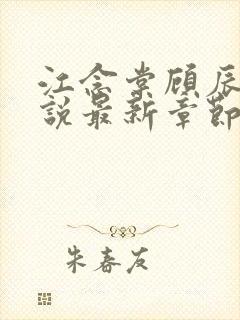 江念棠顾辰
說最新章節
朱春友